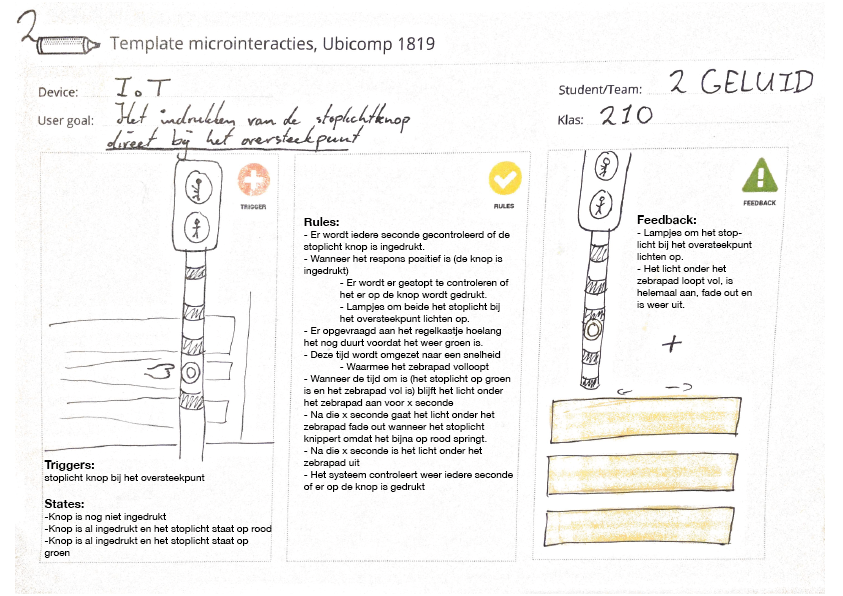 2
Template microinteracties, Ubicomp 1819
Device: I.o.T
User goal: Het indrukken van de stoplichtknop
direct bij het oversteekpunt
Student/Team: 2 GELUID
Klas: 210
TRIGGER
Triggers:
stoplicht knop bij het oversteekpunt
States:
-Knop is nog niet ingedrukt
-Knop is al ingedrukt en het stoplicht staat op rood
-Knop is al ingedrukt en het stoplicht staat op
groen
RULES
Rules:
- Er wordt iedere seconde gecontroleerd of de
stoplicht knop is ingedrukt.
- Wanneer het respons positief is (de knop is
ingedrukt)
- Er wordt er gestopt te controleren of
het er op de knop wordt gedrukt.
- Lampjes om beide het stoplicht bij
het oversteekpunt lichten op.
- Er opgevraagd aan het regelkastje hoelang
het nog duurt voordat het weer groen is.
- Deze tijd wordt omgezet naar een snelheid
- Waarmee het zebrapad volloopt
- Wanneer de tijd om is (het stoplicht op groen
is en het zebrapad vol is) blijft het licht onder
het zebrapad aan voor x seconde
- Na die x seconde gaat het licht onder het
zebrapad fade out wanneer het stoplicht
knippert omdat het bijna op rood springt.
- Na die x seconde is het licht onder het
zebrapad uit
- Het systeem controleert weer iedere seconde
of er op de knop is gedrukt
FEEDBACK
Feedback:
- Lampjes om het stop-
licht bij het oversteekpunt
lichten op.
- Het licht onder het
zebrapad loopt vol, is
helemaal aan, fade out en
is weer uit.
+